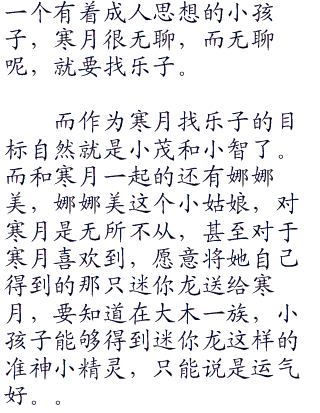 一个有着成人思想的小孩
子，寒月很无聊，而无聊
呢，就要找乐子。
而作为寒月找乐子的目
标自然就是小茂和小智了。
而和寒月一起的还有娜娜
美，娜娜美这个小姑娘，对
寒月是无所不从，甚至对于
寒月喜欢到，愿意将她自己
得到的那只迷你龙送给寒
月，要知道在大木一族，小
孩子能够得到迷你龙这样的
准神小精灵，只能说是运气
好。。